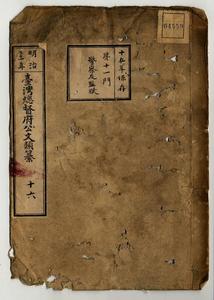 十五年保存
第十一門
警察及監獄
明治
三十年
臺灣總督府公文類纂
十六